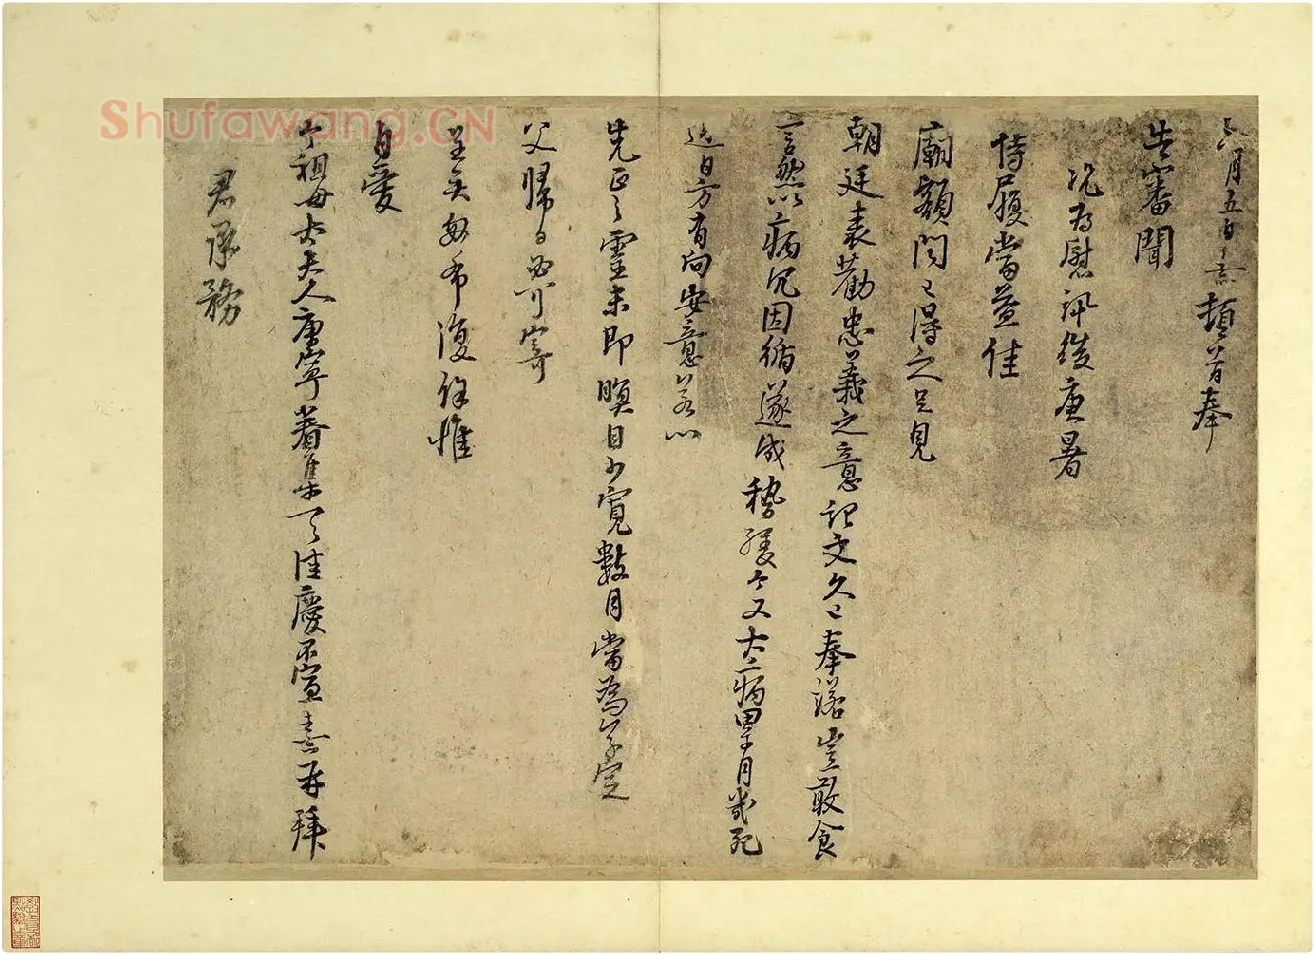 Shufawang.CN
六月五日熹頓首奉
告審聞
為慰訊後庚暑
侍履當益佳
廟額聞已得之足見
朝廷表勸忠義之意記文久已奉諾豈敢食
言然以病冗因循遂成稽緩今又大病月幾死
近日方有向安意若以
先正之靈未即瞑目少寬數月當為草定
父歸日必可寄
呈矣匆布復餘惟
自愛
令祖母太夫人康寧眷集一一佳慶不宣熹再拜
君承務